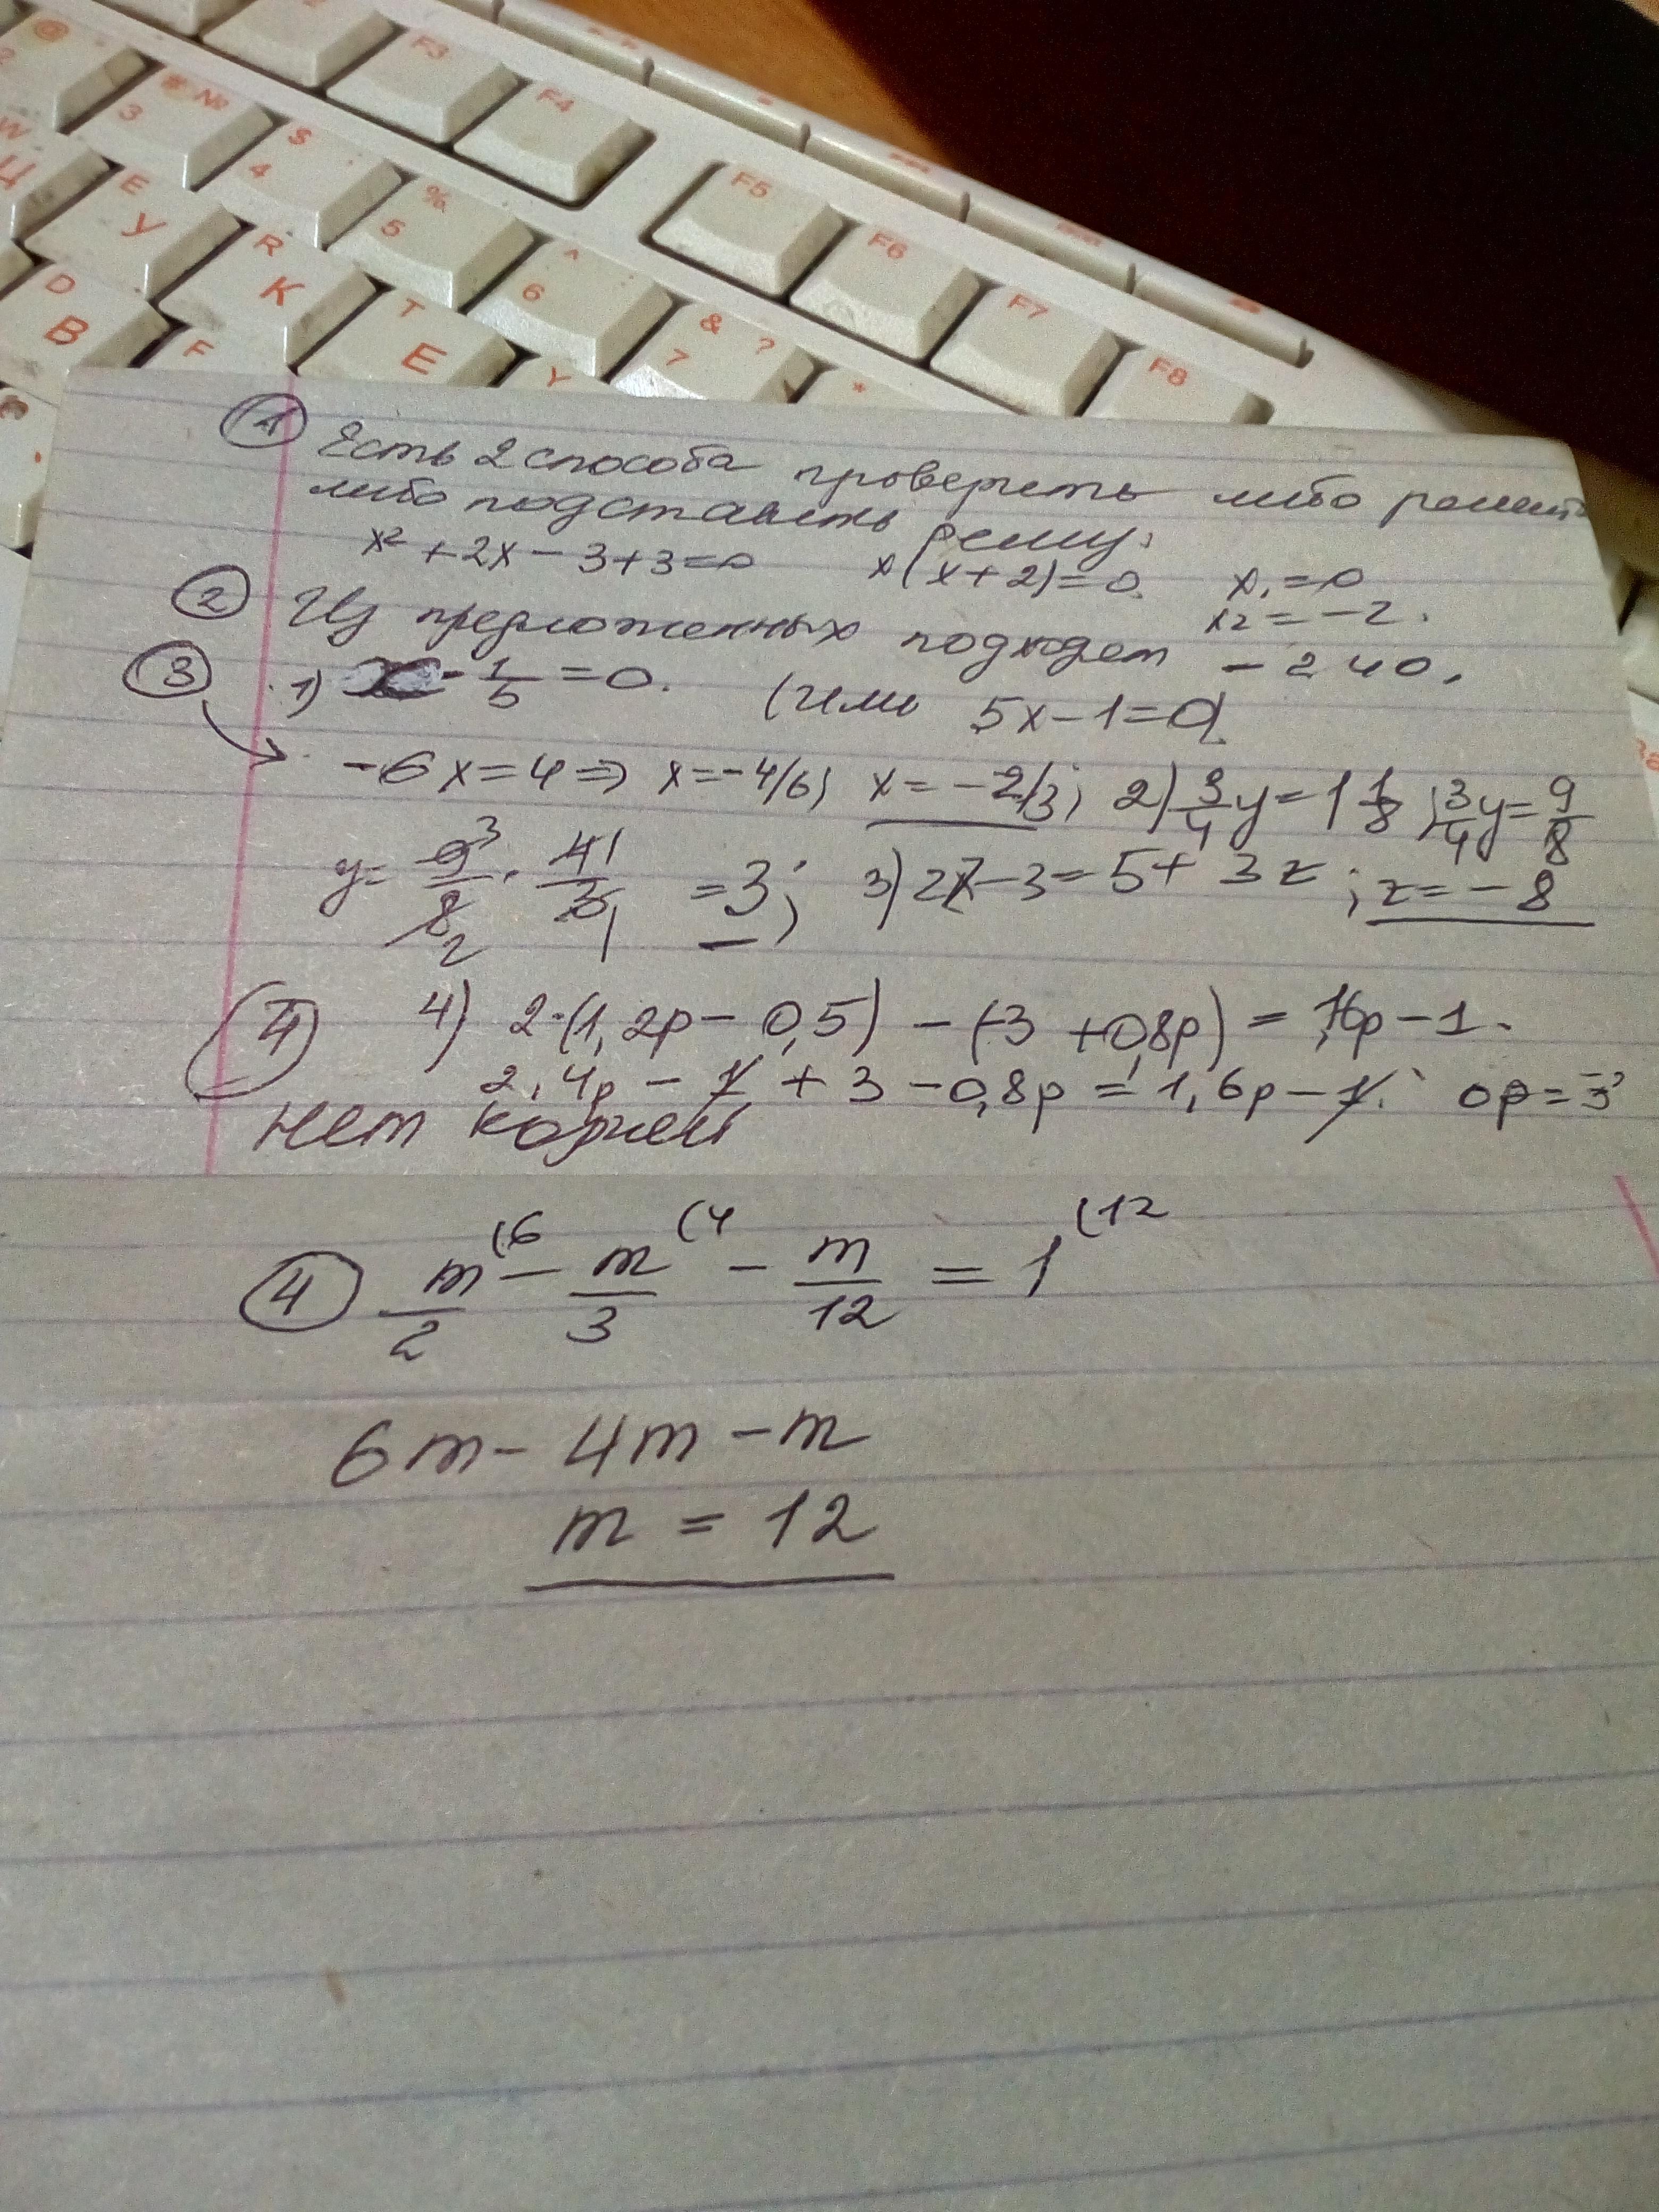 F3
F4
F5
F6
F7
F8
@ 2
* № 3
$ 4
% 5
^ 6
& ? 7
*
W Ц
E У
R К
T Е
Y
D В
F
① Есть 2 способа проверить либо решить
либо подставить Решу:
x² + 2x - 3 + 3 = 0 x(x+2)=0. x₁ = 0
x2 = -2.
② Из предложенных подходят -2 и 0.
③ 1) x - 1/5 = 0. (Или 5x-1=0)
-6x=4 => x=-4/6; x=-2/3; 2) 3/4 y = 1 1/8; 3/4 y = 9/8
y = 9³/8₂ · 4¹/3₁ = 3; 3) 2z-3=5+3z; z=-8
④ 4) 2·(1,2p - 0,5) - (-3 + 0,8p) = 1,6p - 1.
2,4p - 1 + 3 - 0,8p = 1,6p - 1. 0p = -3
нет корней
④ m/2 (6 - m/3 (4 - m/12 = 1 (12
6m - 4m - m
m = 12